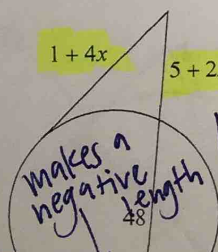 1 + 4x
5 + 2
makes a
negative
length
48